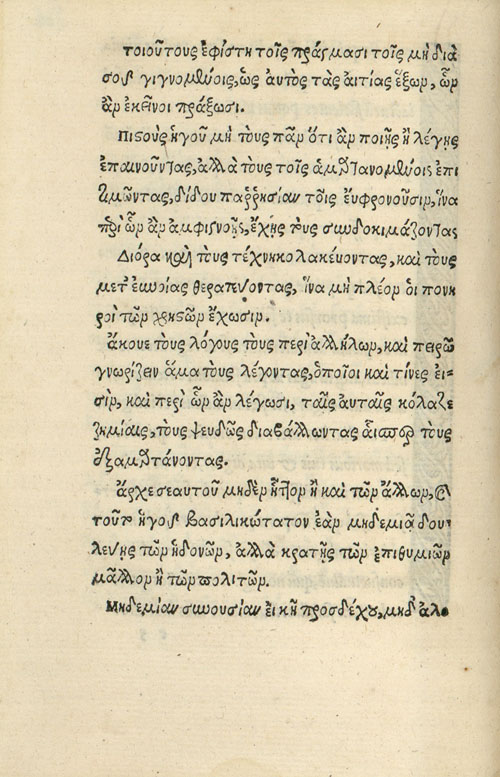 τοιούτους ἐφίστη τοῖς πράγμασι τοῖς μὴ διὰ
σοῦ γιγνομένοις, ὡς αὐτὸς τὰς αἰτίας ἕξων, ὧν
ἂν ἐκεῖνοι πράξωσι.
Πιστοὺς ἡγοῦ μὴ τοὺς πᾶν ὅτι ἂν ποιῇς ἢ λέγῃς
ἐπαινοῦντας, ἀλλὰ τοὺς τοῖς ἁμαρτανομένοις ἐπι
τιμῶντας, δίδου παῤῥησίαν τοῖς εὐφρονοῦσιν, ἵνα
περὶ ὧν ἂν ἀμφιγνοῇς, ἔχῃς τοὺς συνδοκιμάζοντας
Διόρα καὶ τοὺς τέχνῃ κολακεύοντας, καὶ τοὺς
μετ' εὐνοίας θεραπεύοντας, ἵνα μὴ πλέον οἱ πονη
ροὶ τῶν χρηστῶν ἔχωσιν.
ἄκουε τοὺς λόγους τοὺς περὶ ἀλλήλων, καὶ πειρῶ
γνωρίζειν ἅμα τοὺς λέγοντας, ὁποῖοι καὶ τίνες εἰ-
σὶν, καὶ περὶ ὧν ἂν λέγωσι, ταῖς αὐταῖς κόλαζε
ζημίαις, τοὺς ψευδῶς διαβάλλοντας αἷσπερ τοὺς
ἐξαμαρτάνοντας.
ἄρχε σεαυτοῦ μηδὲν ἧττον ἢ καὶ τῶν ἄλλων, καὶ
τοῦτο ἡγοῦ βασιλικώτατον ἐὰν μηδεμιᾷ δου-
λεύῃς τῶν ἡδονῶν, ἀλλὰ κρατῇς τῶν ἐπιθυμιῶν
μᾶλλον ἢ τῶν πολιτῶν.
Μηδεμίαν συνουσίαν εἰκῇ προσδέχου, μηδ' ἀλο